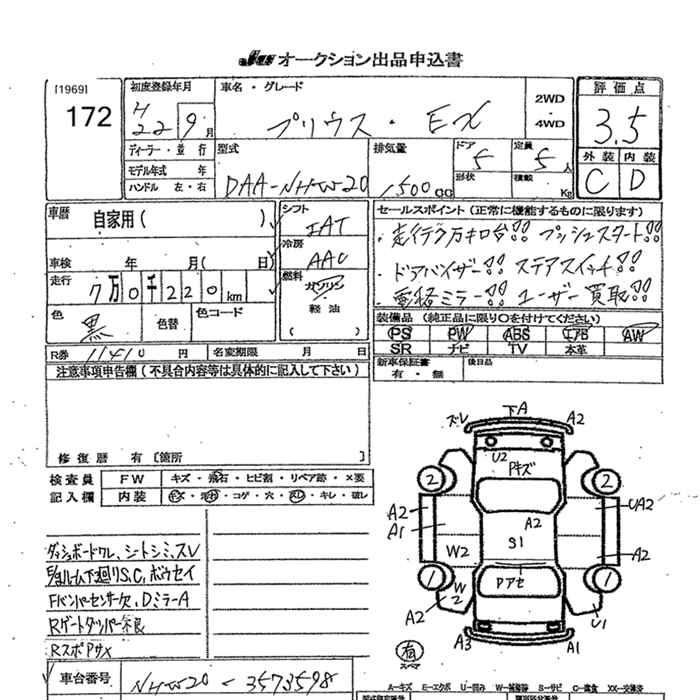 JU オークション出品申込書
[1969]
172
初度登録年月
H
22 9月
ディーラー・並行
モデル年式 年
ハンドル 左・右
車名・グレード
プリウス・EX
2WD
4WD
型式
DAA-NHW20
排気量
1500cc
ドア
5
形状
定員
5人
積載
Kg
評価点
3.5
外装 内装
C D
車歴
自家用( )
車検 年 月( 日)
走行
7万0千220km
色
黒
色替
色コード
R券 11410円
名変期限 月 日
シフト
IAT
冷房
AAC
燃料
ガソリン
軽油
( )
セールスポイント(正常に機能するものに限ります)
・走行7万キロ台!! プッシュスタート!!
・ドアバイザー!! ステアスイッチ!!
・電格ミラー!! ユーザー買取!!
装備品(純正品に限り〇を付けてください)
PS PW ABS エアB AW
SR ナビ TV 本革
新車保証書
有・無
後日品
注意事項申告欄(不具合内容等は具体的に記入して下さい)
修復歴 有[箇所
検査員
記入欄
FW キズ・飛石・ヒビ割・リペア跡・×要
内装 キズ・汚れ・コゲ・穴・スレ・キレ・破レ
ダッシュボードワレ、シートシミ、スレ
E/gルーム下廻りS,C、ボウセイ
Fバンパーセンサー欠、DミラーA
Rゲートダンパー不良
RスポPサX
車台番号
NHW20-3573598
ズレ 下A A2
U2 Pキズ
2 2
A2 A1 UA2
A2
S1
W2 A2
1 1
PアセW2
A2 U1
有
スペア
A3 A1
A=キズ E=エクボ U=凹み W=補修跡 S=サビ C=腐食 XX=交換済